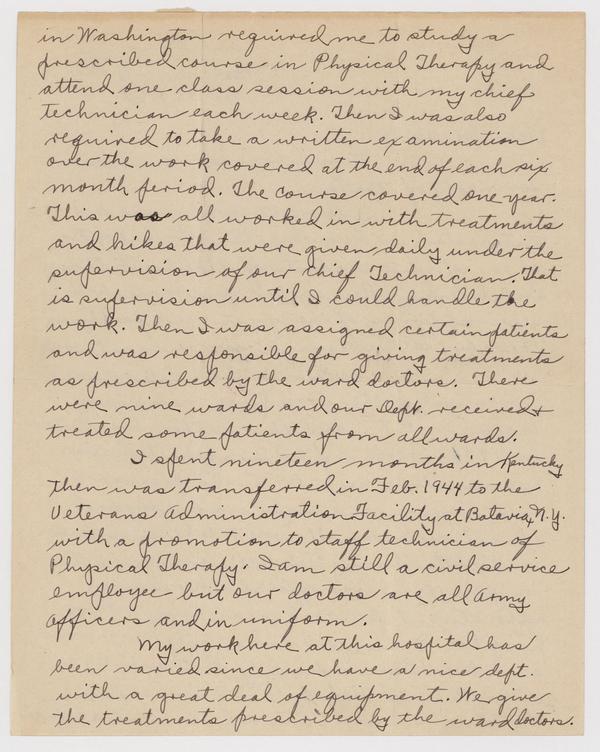 in Washington required me to study a
prescribed course in Physical Therapy and
attend one class session with my chief
technician each week. Then I was also
required to take a written examination
over the work covered at the end of each six
month period. The course covered one year.
This was all worked in with treatments
and hikes that were given daily under the
supervision of our Chief Technician. That
is supervision until I could handle the
work. Then I was assigned certain patients
and was responsible for giving treatments
as prescribed by the ward doctors. There
were nine wards and our Dept. received &
treated some patients from all wards.
I spent nineteen months in Kentucky
then was transferred in Feb. 1944 to the
Veterans Administration Facility at Batavia, N.Y.
with a promotion to staff technician of
Physical Therapy. I am still a civil service
employee but our doctors are all Army
officers and in uniform.
My work here at this hospital has
been varied since we have a nice dept.
with a great deal of equipment. We give
the treatments prescribed by the ward doctors.